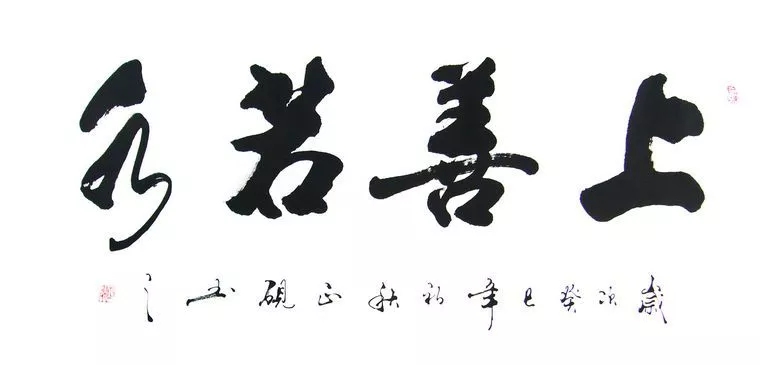 上善若水
歲次癸巳年初秋正硯书之